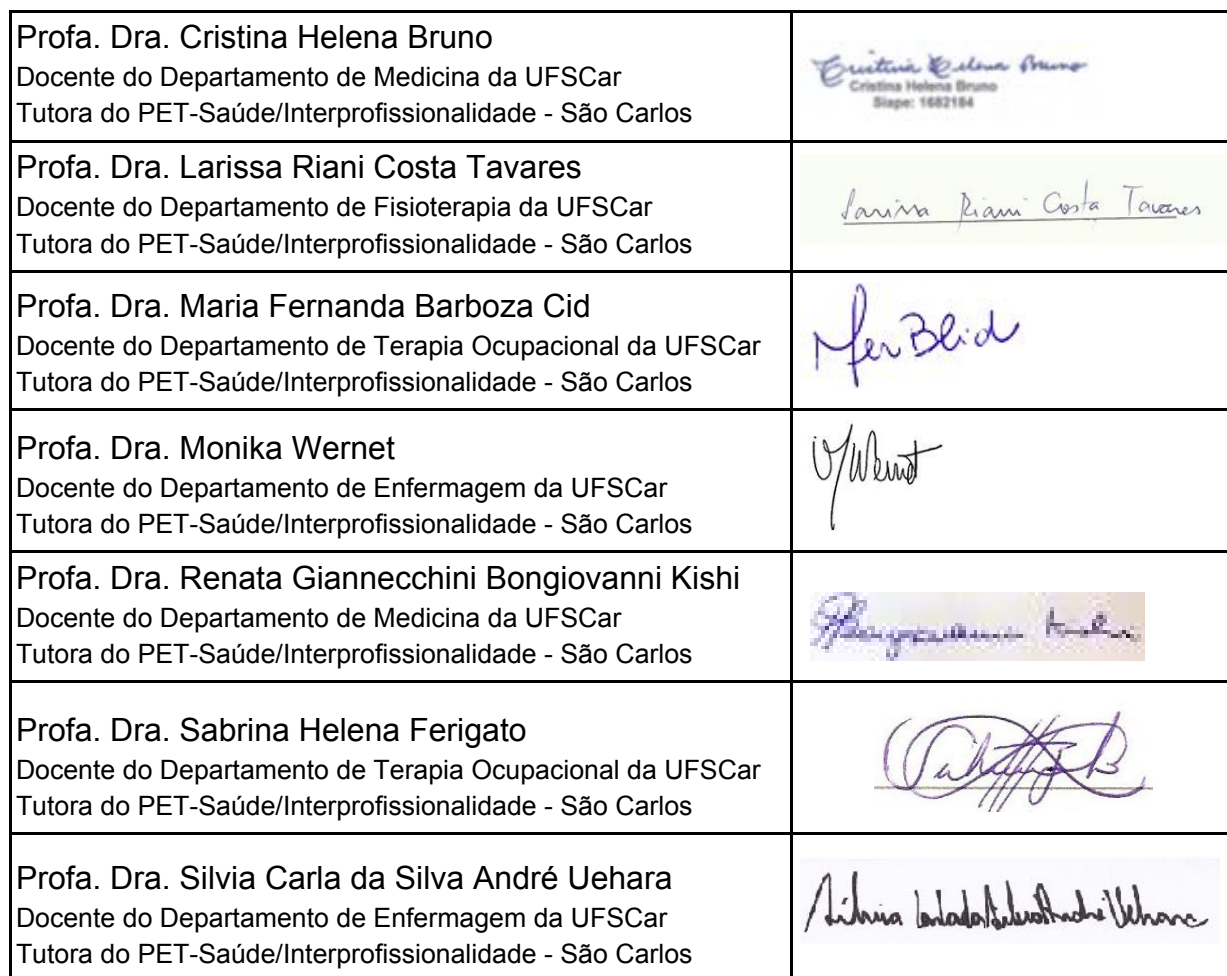 Profa. Dra. Cristina Helena Bruno
Docente do Departamento de Medicina da UFSCar
Tutora do PET-Saúde/Interprofissionalidade - São Carlos
Cristina Helena Bruno
Cristina Helena Bruno
Siape: 1682184
Profa. Dra. Larissa Riani Costa Tavares
Docente do Departamento de Fisioterapia da UFSCar
Tutora do PET-Saúde/Interprofissionalidade - São Carlos
Larissa Riani Costa Tavares
Profa. Dra. Maria Fernanda Barboza Cid
Docente do Departamento de Terapia Ocupacional da UFSCar
Tutora do PET-Saúde/Interprofissionalidade - São Carlos
Profa. Dra. Monika Wernet
Docente do Departamento de Enfermagem da UFSCar
Tutora do PET-Saúde/Interprofissionalidade - São Carlos
Profa. Dra. Renata Giannecchini Bongiovanni Kishi
Docente do Departamento de Medicina da UFSCar
Tutora do PET-Saúde/Interprofissionalidade - São Carlos
Profa. Dra. Sabrina Helena Ferigato
Docente do Departamento de Terapia Ocupacional da UFSCar
Tutora do PET-Saúde/Interprofissionalidade - São Carlos
Profa. Dra. Silvia Carla da Silva André Uehara
Docente do Departamento de Enfermagem da UFSCar
Tutora do PET-Saúde/Interprofissionalidade - São Carlos